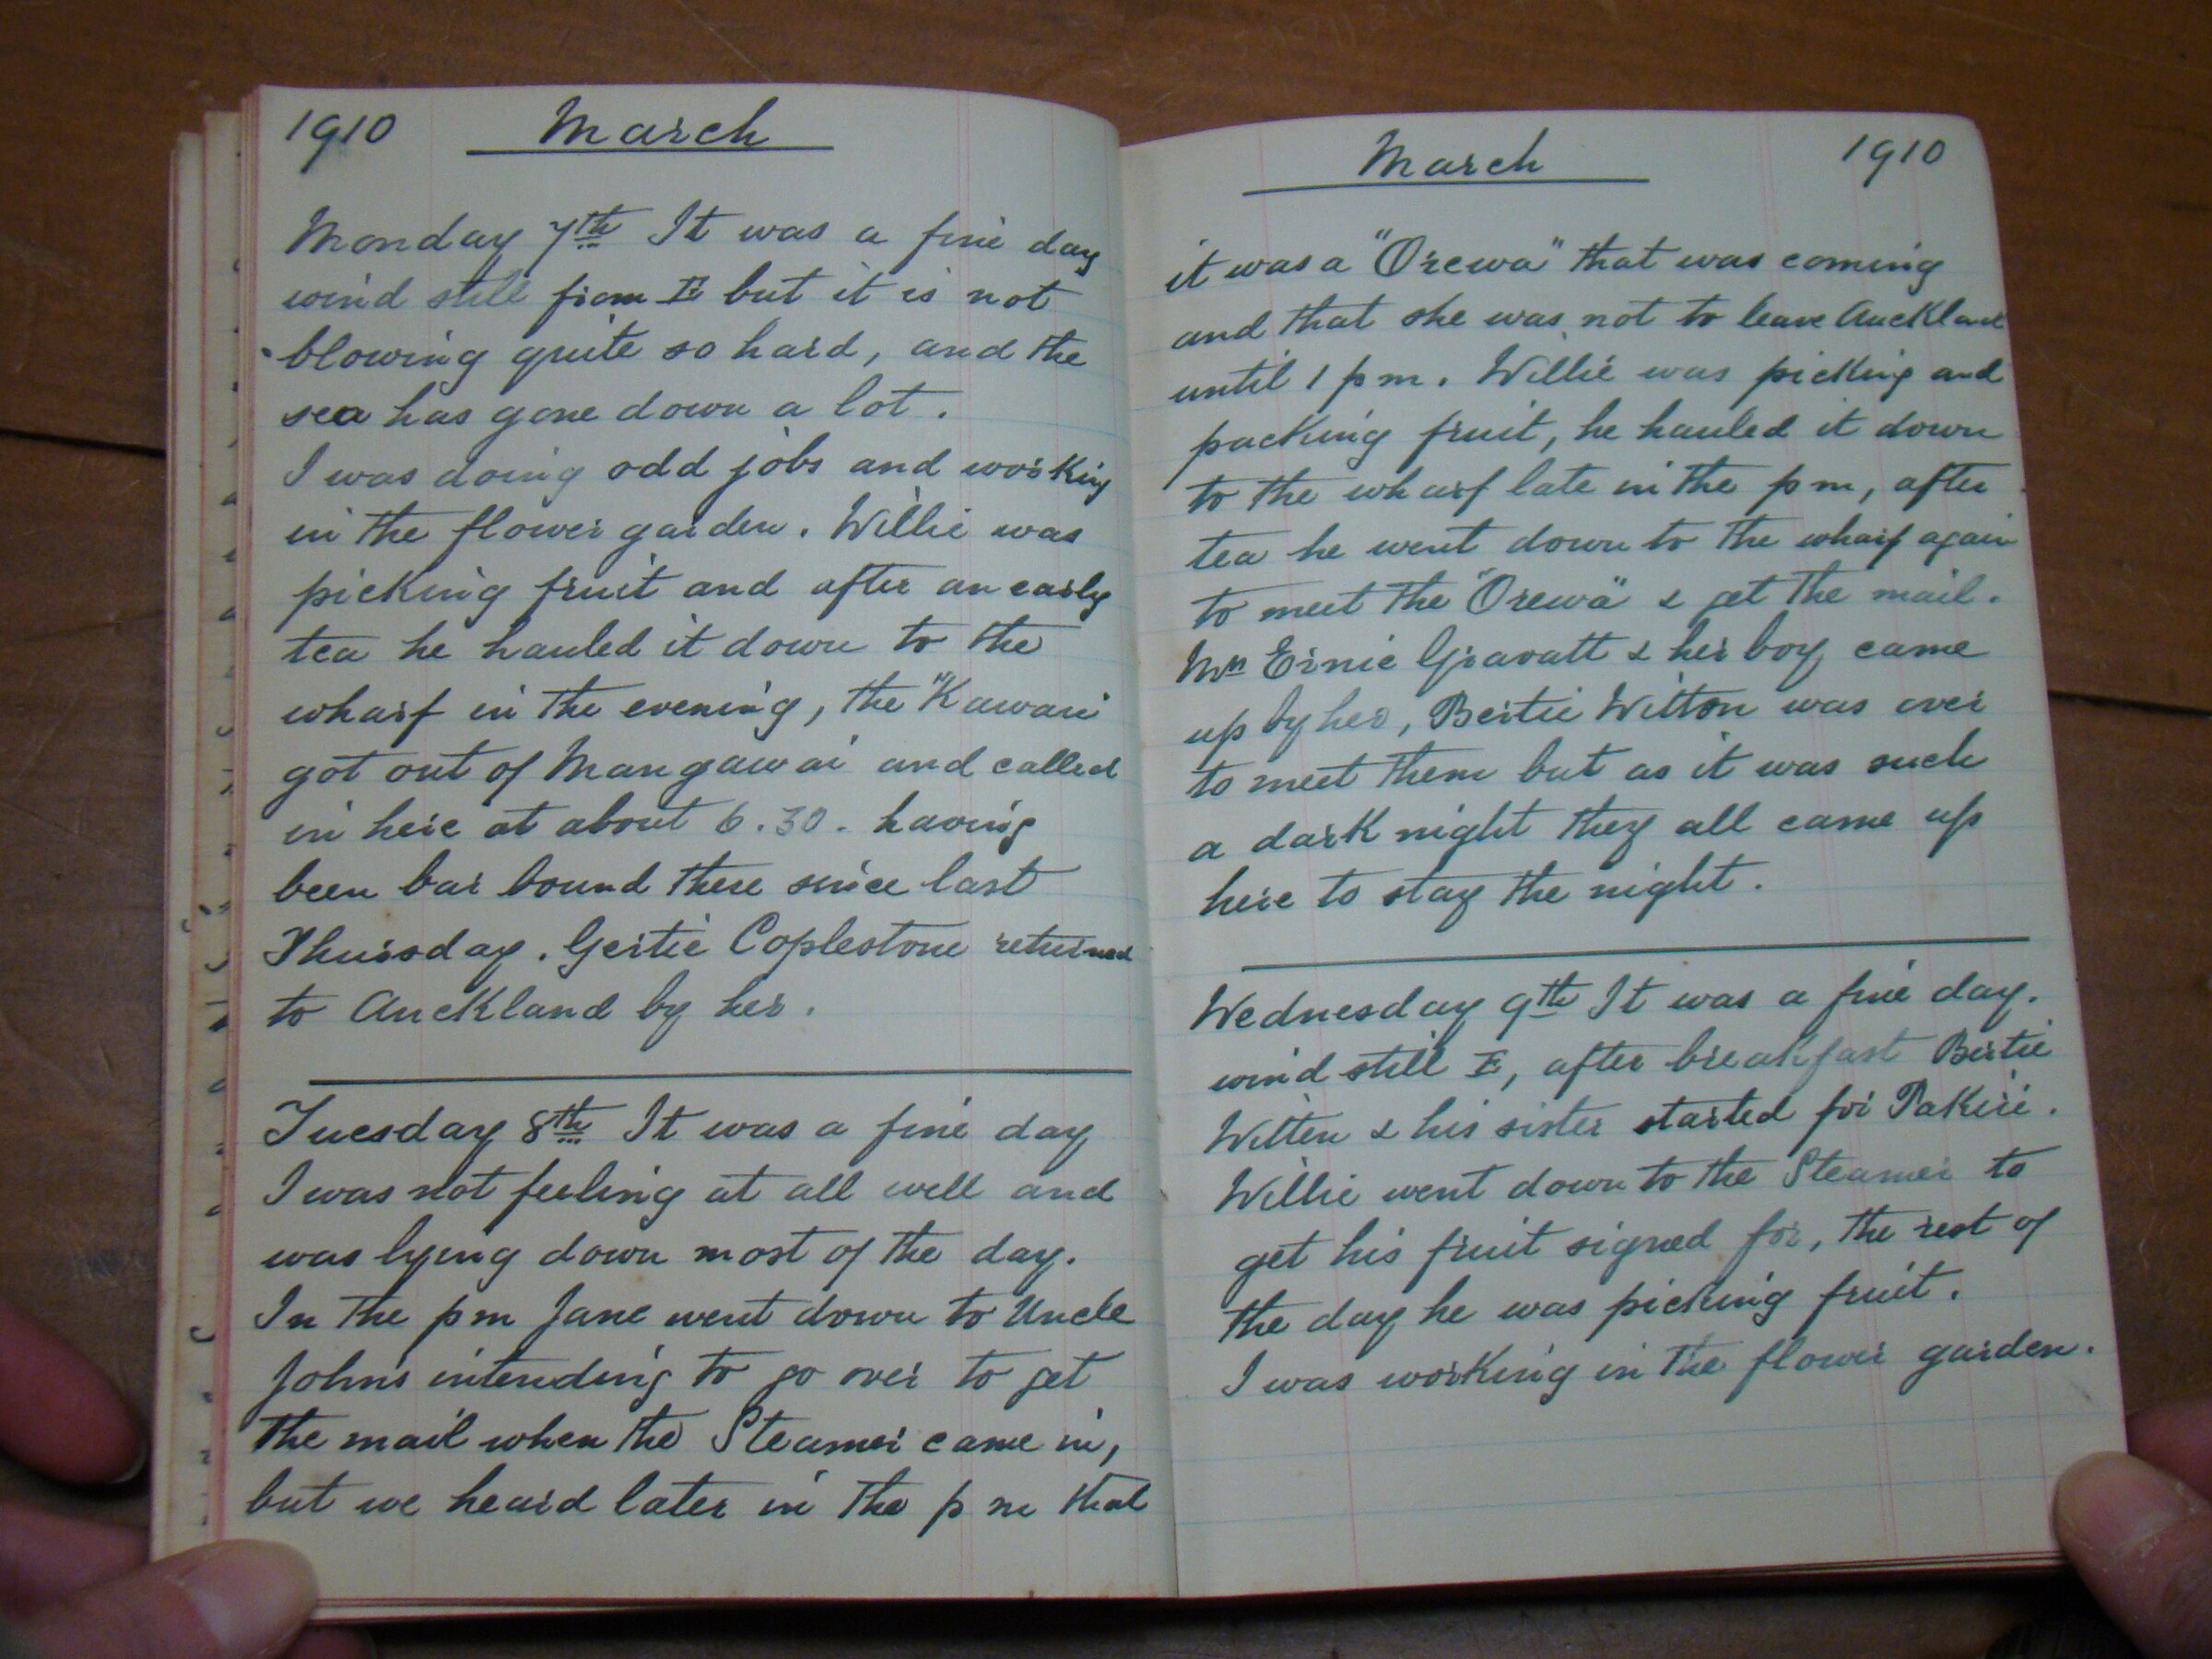 1910 March
Monday 7th It was a fine day
wind still from E but it is not
blowing quite so hard, and the
sea has gone down a lot.
I was doing odd jobs and working
in the flower garden. Willie was
picking fruit and after an early
tea he hauled it down to the
wharf in the evening, the "Kawau"
got out of Mangawai and called
in here at about 6.30. having
been bar bound there since last
Thursday. Gertie Coplestone returned
to Auckland by her.
Tuesday 8th It was a fine day
I was not feeling at all well and
was lying down most of the day.
In the pm Jane went down to Uncle
Johns intending to go over to get
the mail when the Steamer came in,
but we heard later in the pm that
March 1910
it was a "Orewa" that was coming
and that she was not to leave Auckland
until 1 pm. Willie was picking and
packing fruit, he hauled it down
to the wharf late in the pm, after
tea he went down to the wharf again
to meet the "Orewa" & get the mail.
Mrs Ernie Gravatt & her boy came
up by her, Bertie Witton was over
to meet them but as it was such
a dark night they all came up
here to stay the night.
Wednesday 9th It was a fine day.
wind still E, after breakfast Bertie
Witten & his sister started for Pakiri.
Willie went down to the Steamer to
get his fruit signed for, the rest of
the day he was picking fruit.
I was working in the flower garden.